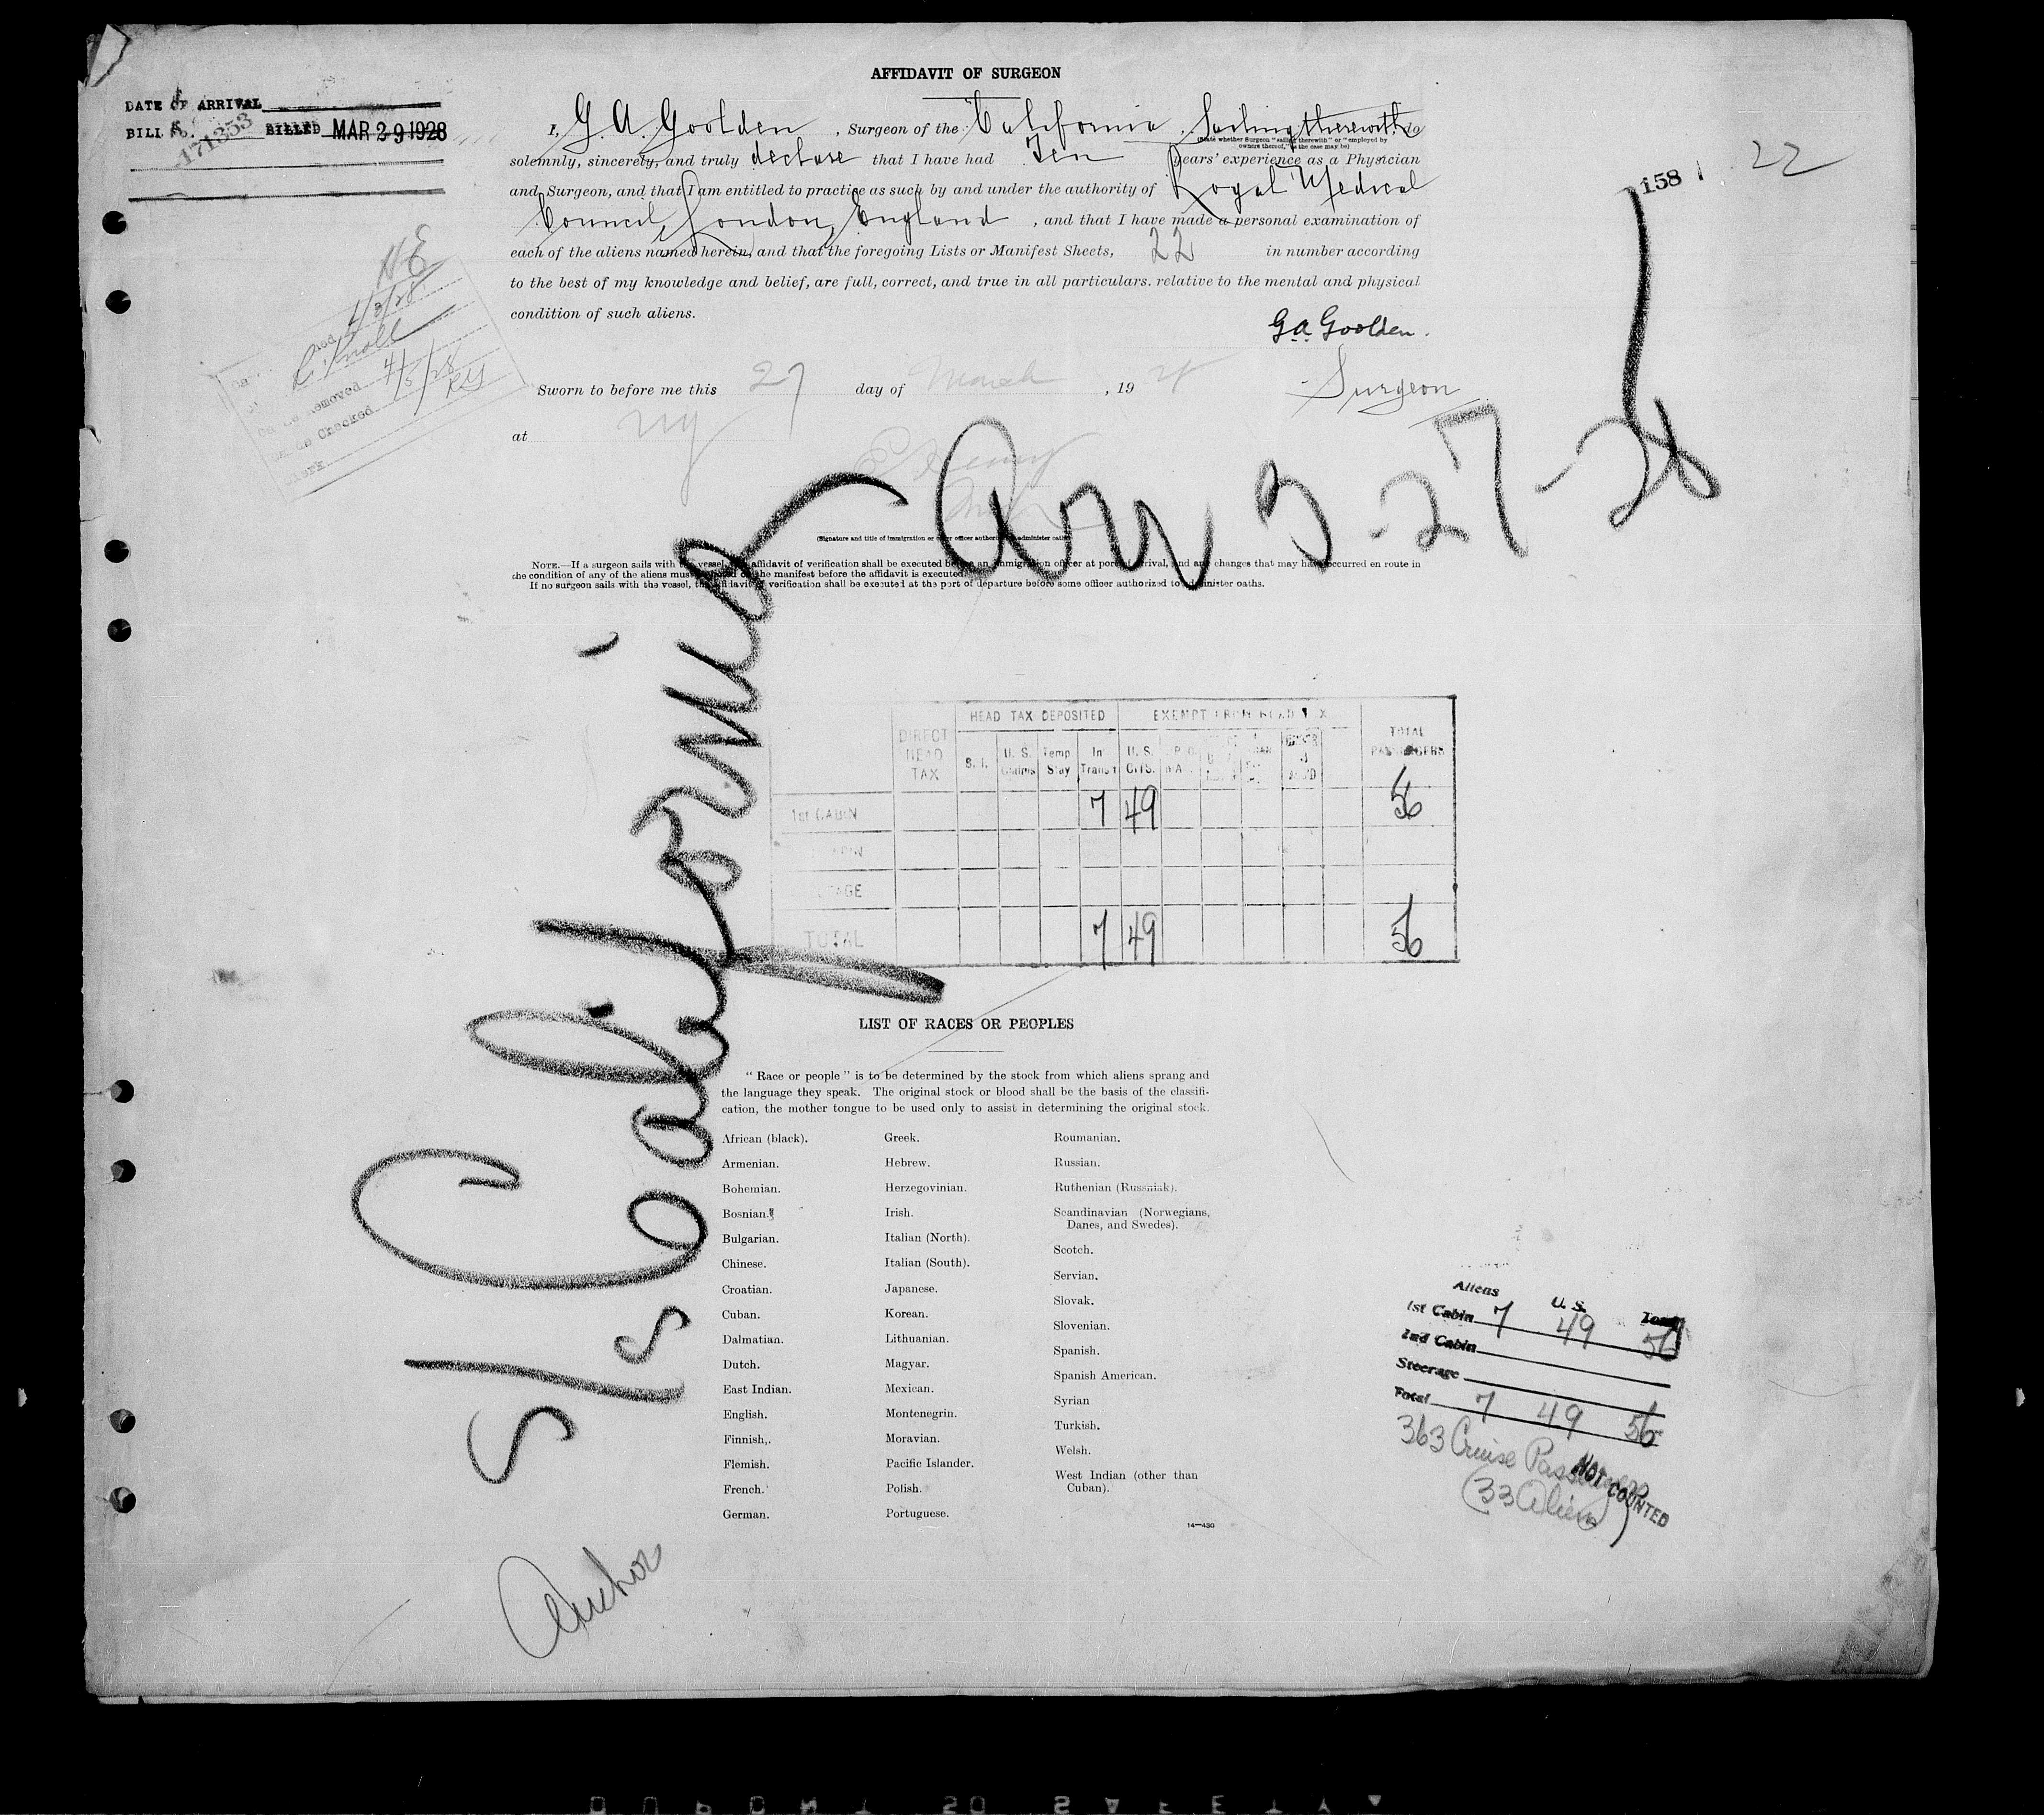 AFFIDAVIT OF SURGEON
DATE OF ARRIVAL
BILL No. 171353 BILLED MAR 29 1928
I, G. A. Goolden, Surgeon of the California, Sailing therewith, do
(State whether Surgeon "sailing therewith" or "employed by
owners thereof," as the case may be)
solemnly, sincerely, and truly declare that I have had Ten years' experience as a Physician
and Surgeon, and that I am entitled to practice as such by and under the authority of Royal Medical
Council, London, England, and that I have made a personal examination of
each of the aliens named herein, and that the foregoing Lists or Manifest Sheets, 22 in number according
to the best of my knowledge and belief, are full, correct, and true in all particulars. relative to the mental and physical
condition of such aliens.
158
22
G. A. Goolden.
Surgeon
Sworn to before me this 27 day of March, 19 28
at NY
NE
4/3/28
Removed 4/5/28
Checked
Arr 3-27-28
(Signature and title of immigration or other officer authorized to administer oaths)
NOTE.—If a surgeon sails with the vessel, the affidavit of verification shall be executed before an immigration officer at port of arrival, and any changes that may have occurred en route in
the condition of any of the aliens must be noted on the manifest before the affidavit is executed.
If no surgeon sails with the vessel, the affidavit of verification shall be executed at the port of departure before some officer authorized to administer oaths.
S/S California
DIRECT HEAD TAX
HEAD TAX DEPOSITED
EXEMPT FROM HEAD TAX
TOTAL PASSENGERS
S. I. U. S. Claims Temp Stay In Transit U. S. CITS.
1st CABIN 7 49 56
TOTAL 7 49 56
LIST OF RACES OR PEOPLES
"Race or people" is to be determined by the stock from which aliens sprang and
the language they speak. The original stock or blood shall be the basis of the classifi-
cation, the mother tongue to be used only to assist in determining the original stock.
African (black).
Armenian.
Bohemian.
Bosnian.
Bulgarian.
Chinese.
Croatian.
Cuban.
Dalmatian.
Dutch.
East Indian.
English.
Finnish,.
Flemish.
French.
German.
Greek.
Hebrew.
Herzegovinian.
Irish.
Italian (North).
Italian (South).
Japanese.
Korean.
Lithuanian.
Magyar.
Mexican.
Montenegrin.
Moravian.
Pacific Islander.
Polish.
Portuguese.
Roumanian.
Russian.
Ruthenian (Russniak).
Scandinavian (Norwegians,
Danes, and Swedes).
Scotch.
Servian.
Slovak.
Slovenian.
Spanish.
Spanish American.
Syrian
Turkish.
Welsh.
West Indian (other than
Cuban).
14—430
Aliens U. S. Total
1st Cabin 7 49 56
2nd Cabin
Steerage
Total 7 49 56
363 Cruise Passengers
(33 Aliens)
NOT COUNTED
Anchor
DUPONT SAFETY